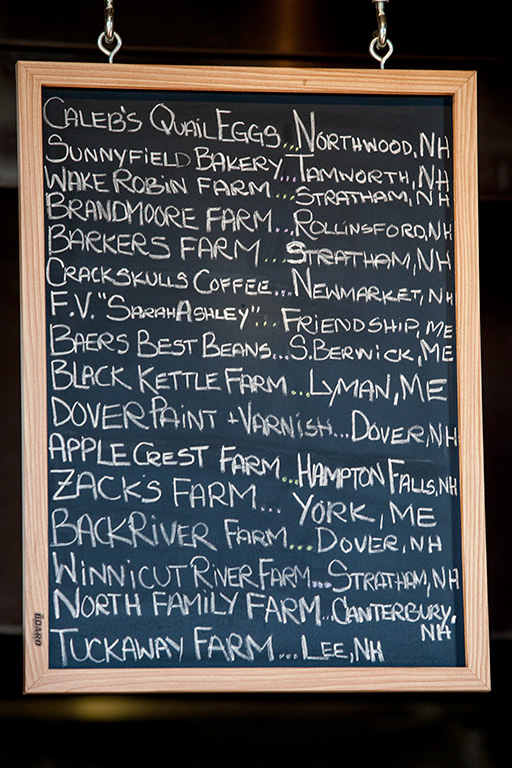 CALEB'S QUAIL EGGS...NORTHWOOD, NH
SUNNYFIELD BAKERY...TAMWORTH, NH
WAKE ROBIN FARM...STRATHAM, NH
BRANDMOORE FARM...ROLLINSFORD, NH
BARKERS FARM...STRATHAM, NH
CRACKSKULLS COFFEE...NEWMARKET, NH
F.V. "SARAH ASHLEY"... FRIENDSHIP, ME
BAERS BEST BEANS...S. BERWICK, ME
BLACK KETTLE FARM...LYMAN, ME
DOVER PAINT + VARNISH...DOVER, NH
APPLECREST FARM...HAMPTON FALLS, NH
ZACK'S FARM... YORK, ME
BACKRIVER FARM...DOVER, NH
WINNICUT RIVER FARM...STRATHAM, NH
NORTH FAMILY FARM...CANTERBURY,
NH
TUCKAWAY FARM...LEE, NH